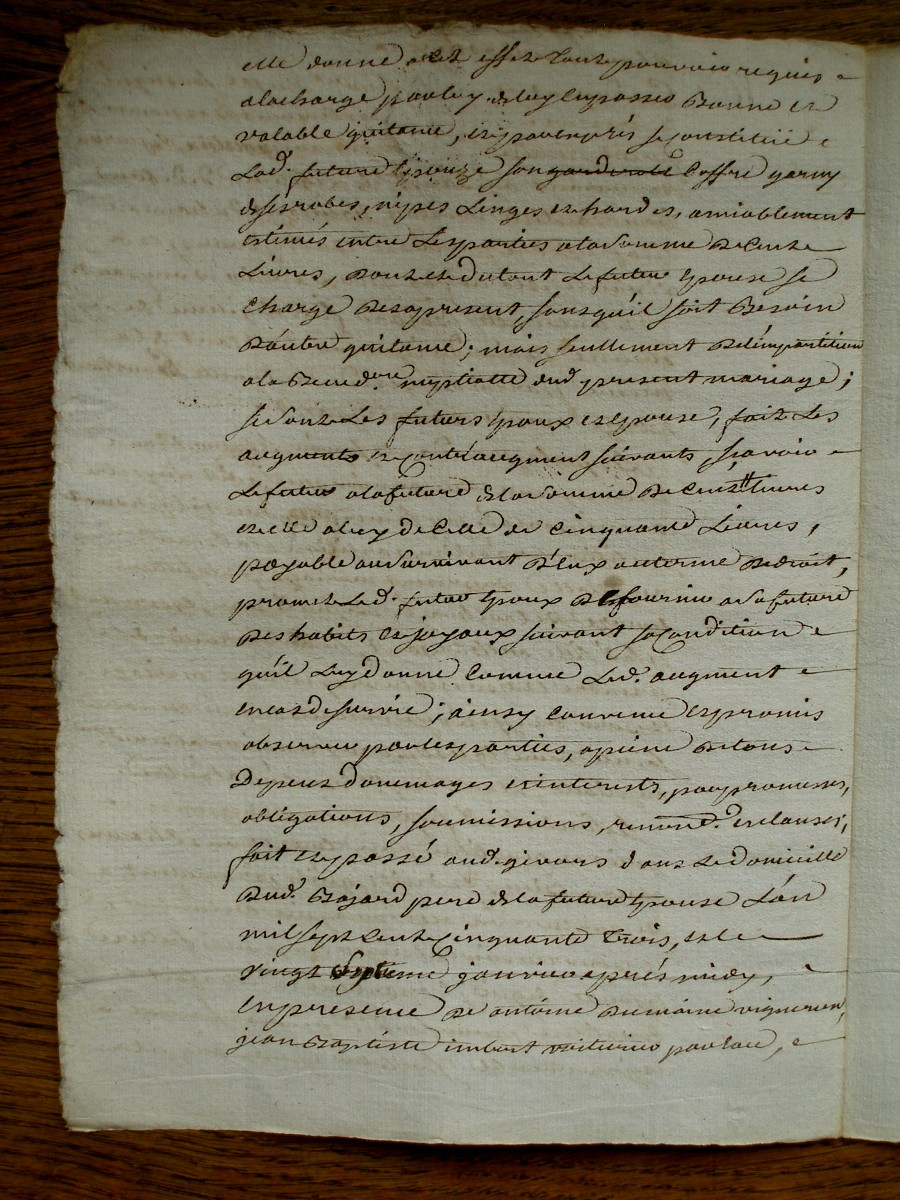 elle donne a cet effet tout pouvoir requis
a la charge par luy de luy en passer bonne et
valable quitance, et par exprés se constitüe
lad. future epouze son garderobe coffre garny
de ses robes, nipes linges et hardes, amiablement
estimés entre les parties a la somme de cent
livres, dont et du tout le futur epoux se
charge des a present, sans qu'il soit besoin
d'autre quitance; mais seullement de
a la bened.on nuptialle dud. present mariage;
se sont les futurs epoux et epouse, fait les
augments et contréaugment suivants, sçavoir
le futur a la future de la somme de cent livres
et elle a luy de celle de cinquante livres,
payable au survivant d'eux au terme de droit,
promet led. futur epoux de fournir a sa future
des habits et joyaux suivant sa condition
qu'il luy donne comme led. augment
en cas de survie; ainsy convenu et promis
observer par les parties, a peine de tous
depens dommages et interests, par promesses,
obligations, soumissions, renond. et clauses,
fait et passé aud. givors dans le domicille
dud. Bajard pere de la future epouse l'an
mil sept cent cinquante trois, et le
vingt septieme janvier aprés midy,
en presence de antoine Dumaine vigneron,
jean Baptiste imbert voiturier par eau,